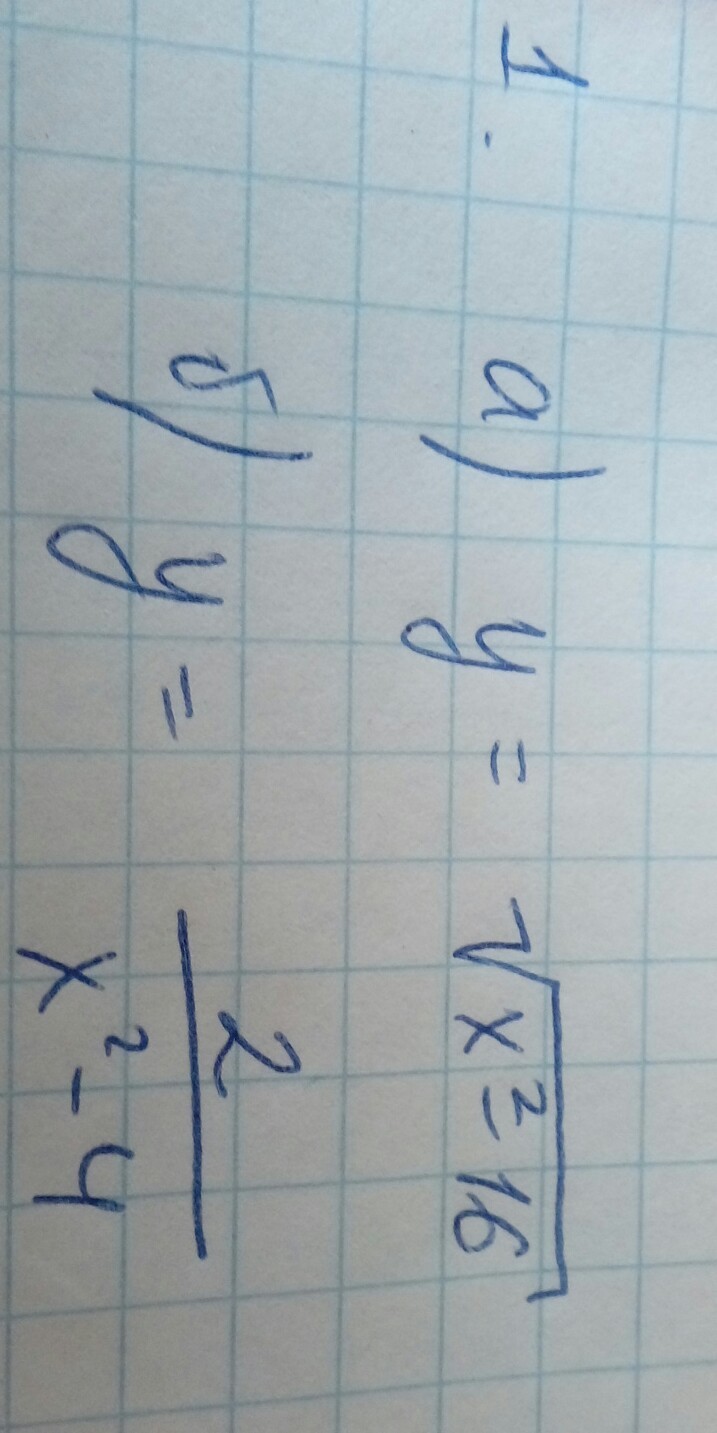 1. а) y = √x²-16
б) y = 2/x²-4